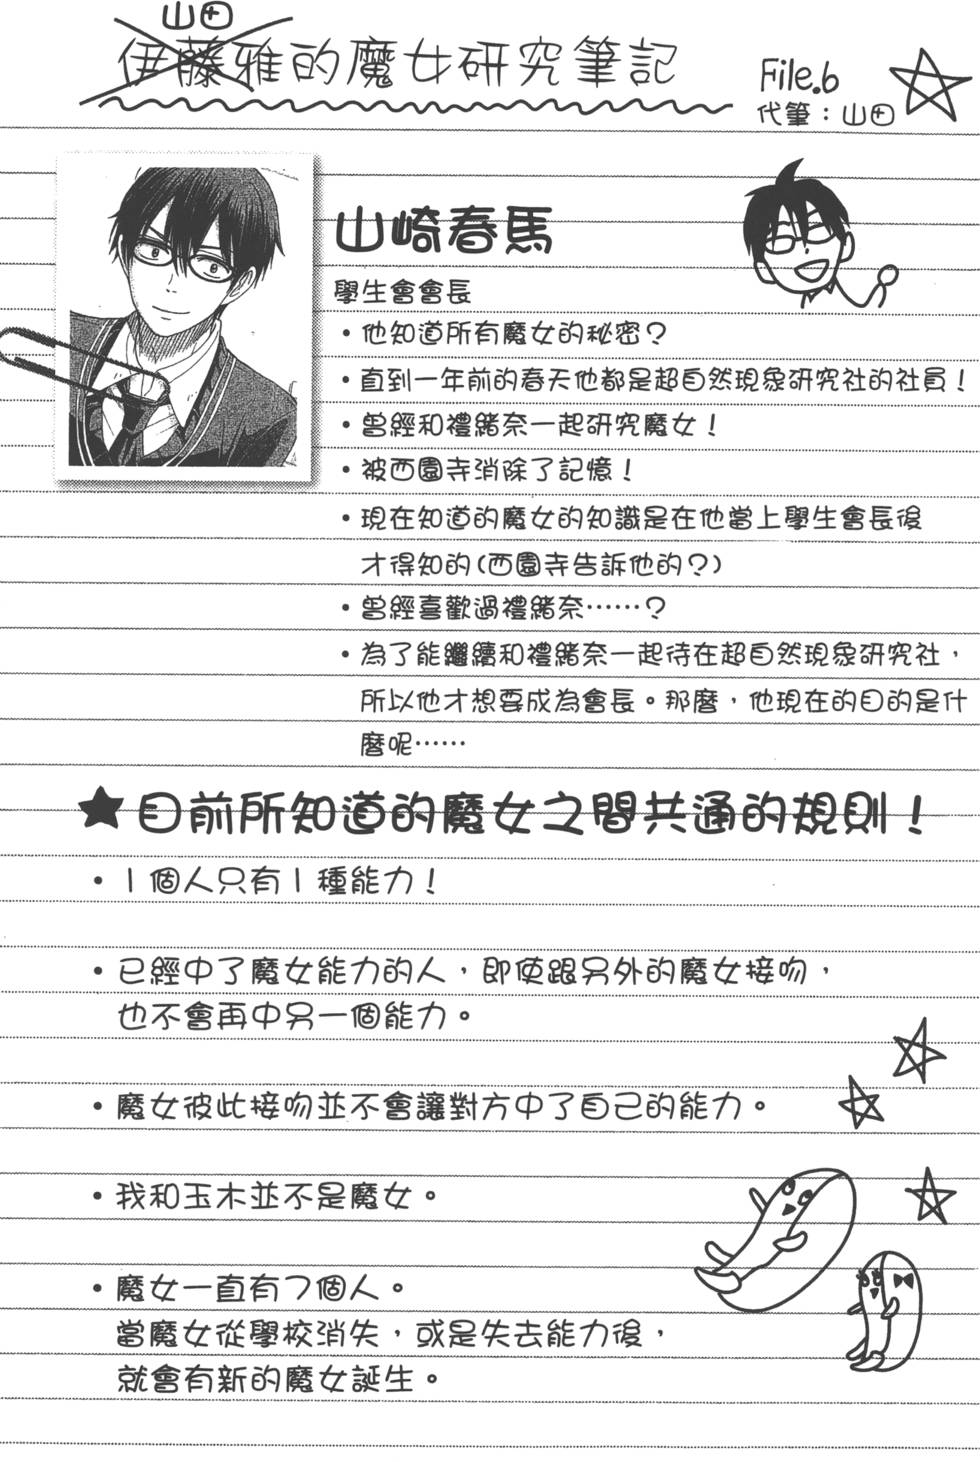 山田
伊藤雅的魔女研究筆記
File.6
代筆：山田
山崎春馬
學生會會長
・他知道所有魔女的秘密？
・直到一年前的春天他都是超自然現象研究社的社員！
・曾經和禮緒奈一起研究魔女！
・被西園寺消除了記憶！
・現在知道的魔女的知識是在他當上學生會長後
才得知的(西園寺告訴他的？)
・曾經喜歡過禮緒奈……？
・為了能繼續和禮緒奈一起待在超自然現象研究社，
所以他才想要成為會長。那麼，他現在的目的是什
麼呢……
★目前所知道的魔女之間共通的規則！
・1個人只有1種能力！
・已經中了魔女能力的人，即使跟另外的魔女接吻，
也不會再中另一個能力。
・魔女彼此接吻並不會讓對方中了自己的能力。
・我和玉木並不是魔女。
・魔女一直有7個人。
當魔女從學校消失，或是失去能力後，
就會有新的魔女誕生。